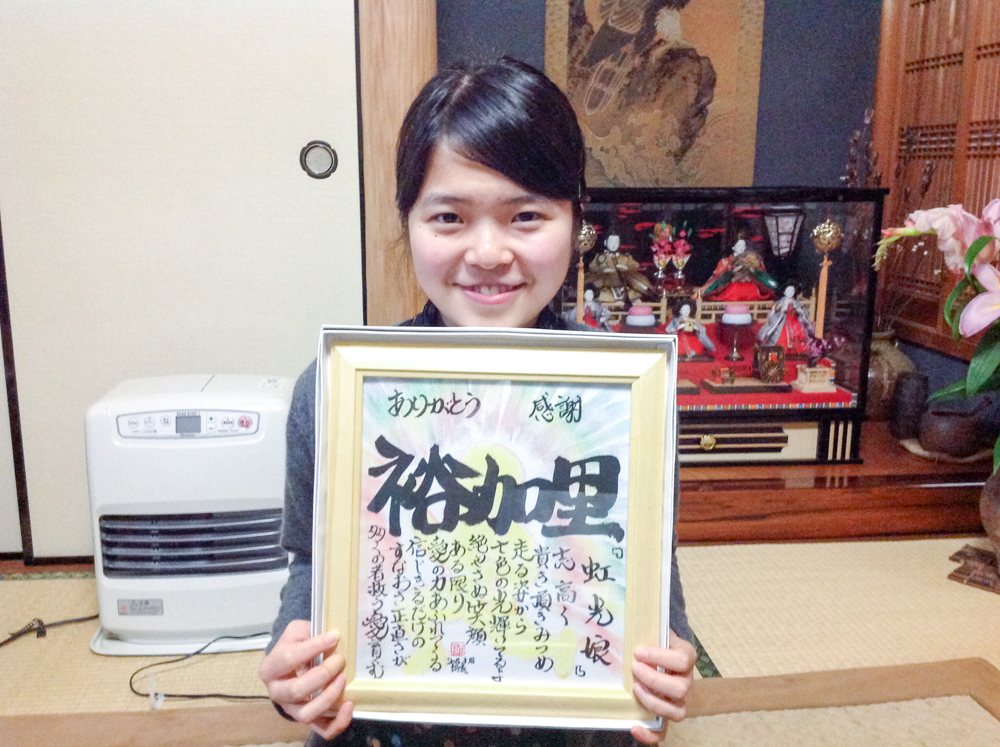 ありがとう 感謝
裕加里
『虹光娘』
志高く
貴き頂きみつめ
走る姿から
七色の光輝
絶やさぬ笑顔
ある限り
愛の力あふれてくる
信じきるだけの
すなおさ正直さが
多くの若 愛育む